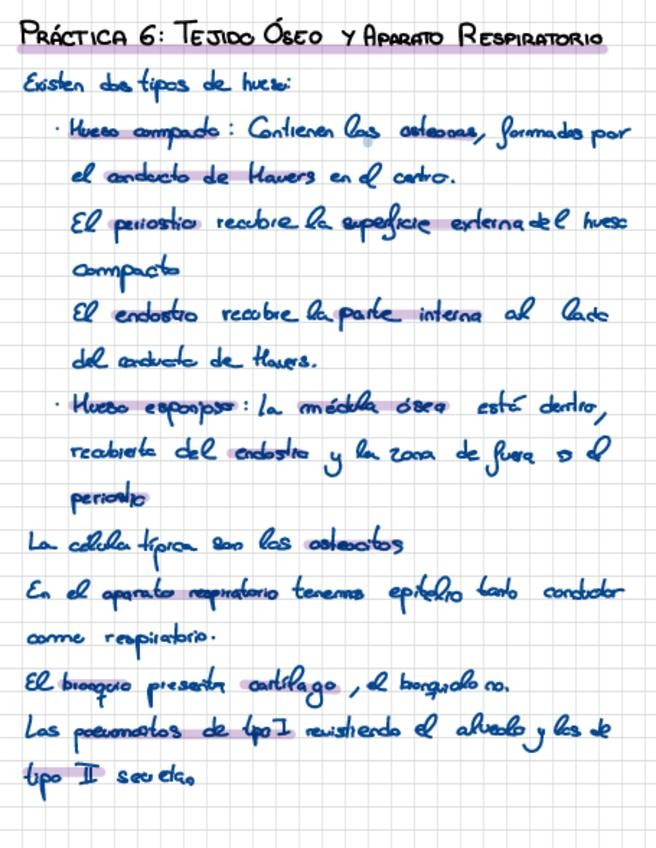 PRÁCTICA 6: TEJIDO ÓSEO Y APARATO RESPIRATORIO
Existen dos tipos de hueso:
· Hueso compacto: Contienen las osteonas, formadas por
el conducto de Havers en el centro.
El periostio recubre la superficie externa del hueso
compacto
El endostio recubre la parte interna al lado
del conducto de Havers.
· Hueso esponjoso: la médula ósea está dentro,
recubierta del endostio y la zona de fuera es el
periostio
La célula típica son los osteocitos
En el aparato respiratorio tenemos epitelio tanto conductor
como respiratorio.
El bronquio presenta cartílago, el bronquiolo no.
Los pneumocitos de tipo I revistiendo el alveolo y los de
tipo II secretan